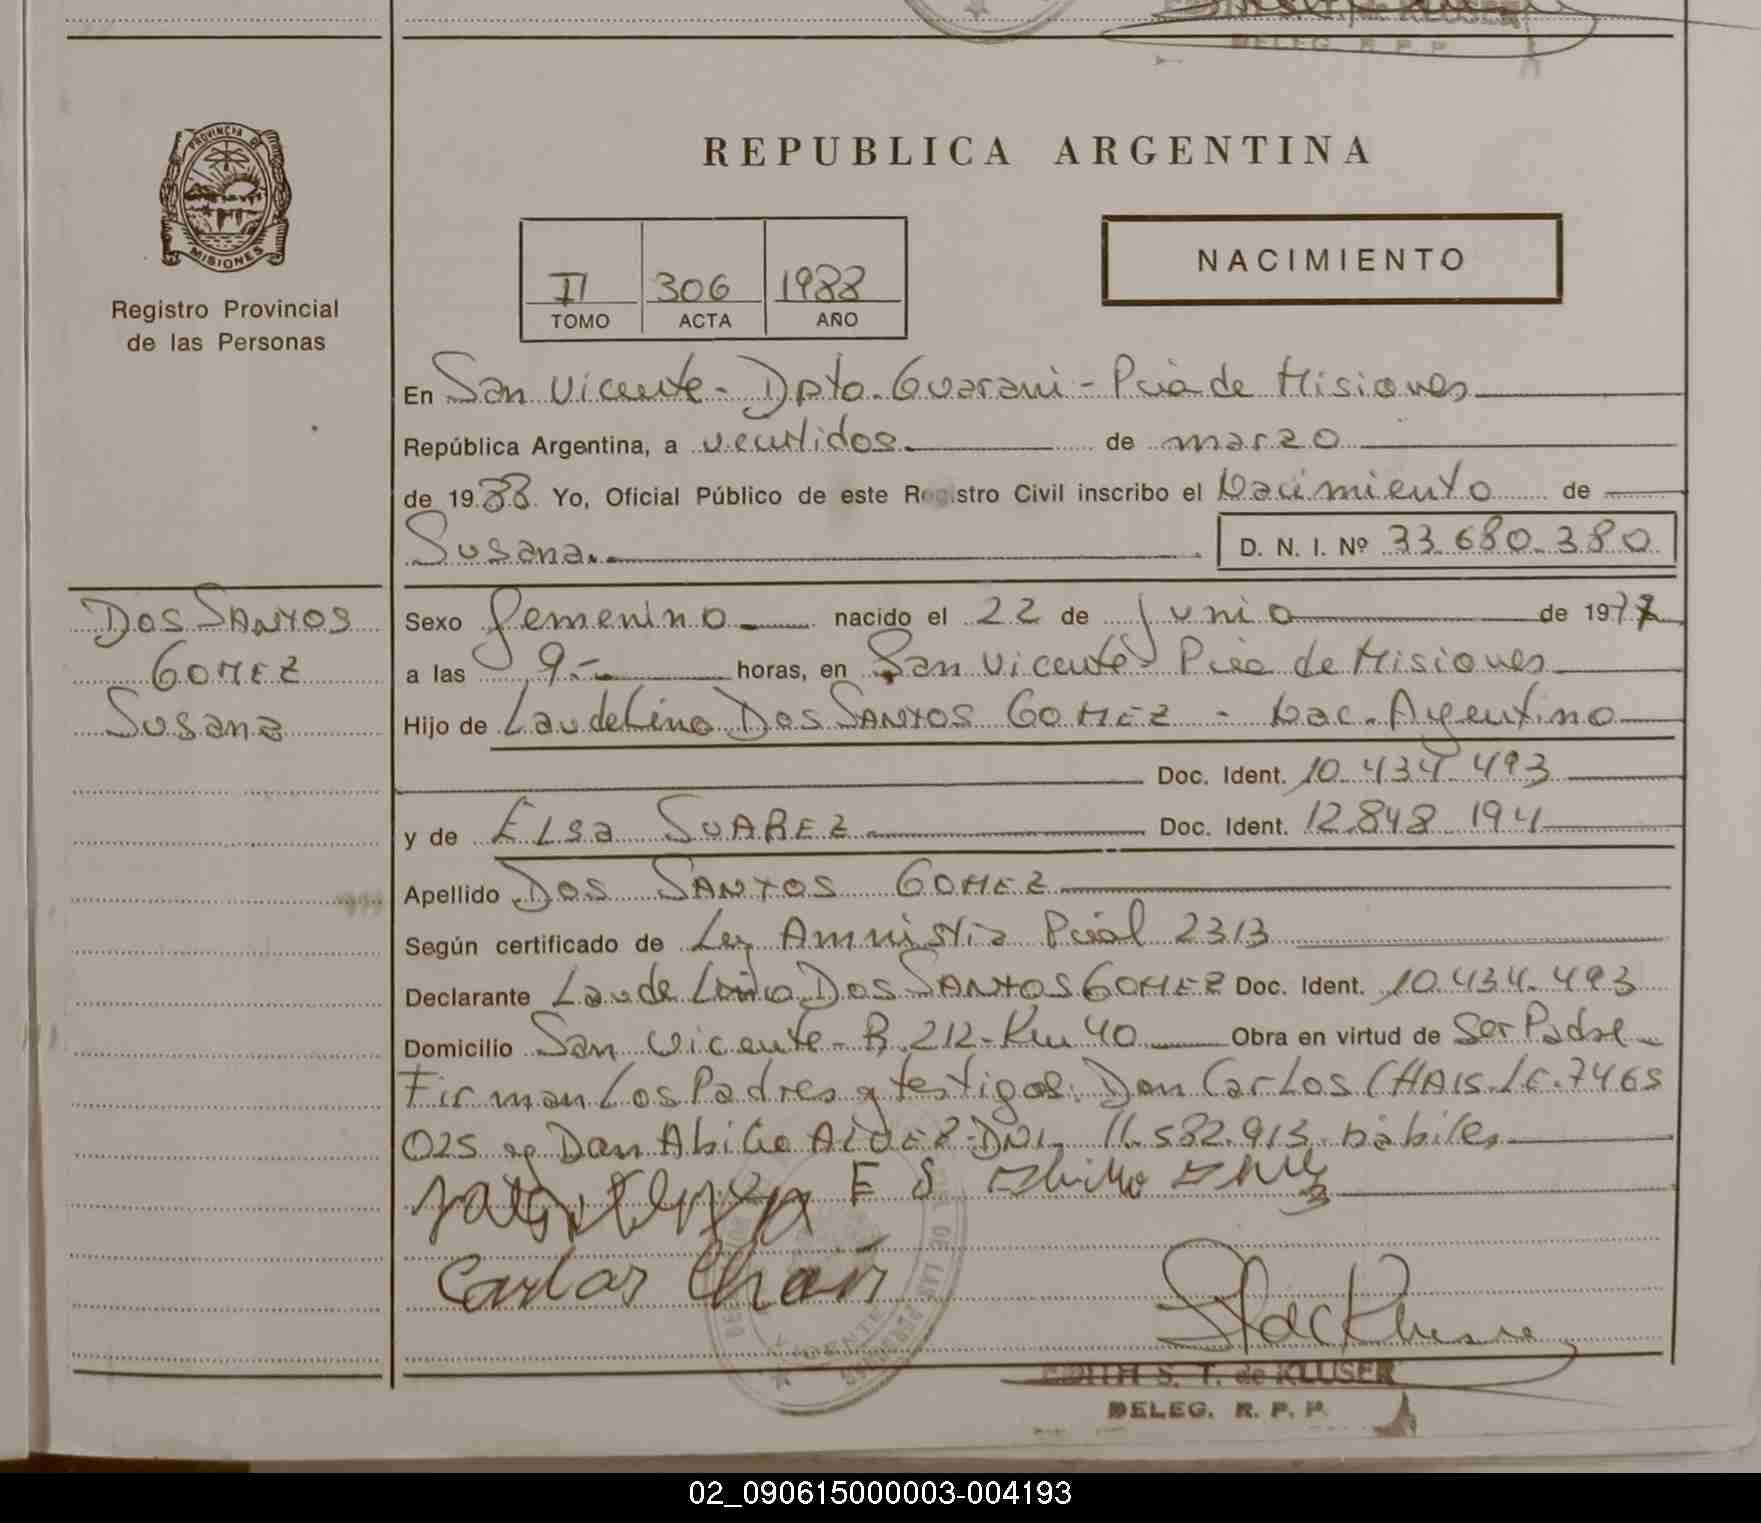 DELEG. R. P. P.
PROVINCIA DE
MISIONES
Registro Provincial
de las Personas
REPUBLICA ARGENTINA
II 306 1988
TOMO ACTA AÑO
NACIMIENTO
En San Vicente - Dpto. Guarani - Pcia de Misiones
República Argentina, a veintidos de marzo
de 1988 Yo, Oficial Público de este Registro Civil inscribo el Nacimiento de
Susana. D. N. I. Nº 33.680.380
DOS SANTOS
GOMEZ
Susana
Sexo femenino nacido el 22 de Junio de 197
a las 9.- horas, en San Vicente Pcia de Misiones
Hijo de Laudelino DOS SANTOS GOMEZ - Nac. Argentino
Doc. Ident. 10.434.493
y de Elsa SUAREZ Doc. Ident. 12.848.194
Apellido DOS SANTOS GOMEZ
Según certificado de Ley Amnistia Pcial 2313
Declarante Laudelino DOS SANTOS GOMEZ Doc. Ident. 10.434.493
Domicilio San Vicente - R. 212 - Km 40 Obra en virtud de Ser Padre
Firman Los Padres y testigos: Don Carlos CHAIS. LE. 7465
025 y Don Abilio ALVEZ - DNI. 11.582.913. hábiles
E S
Carlos Chais
EDITH S. T. de KLUSER
DELEG. R. P. P.
02_090615000003-004193